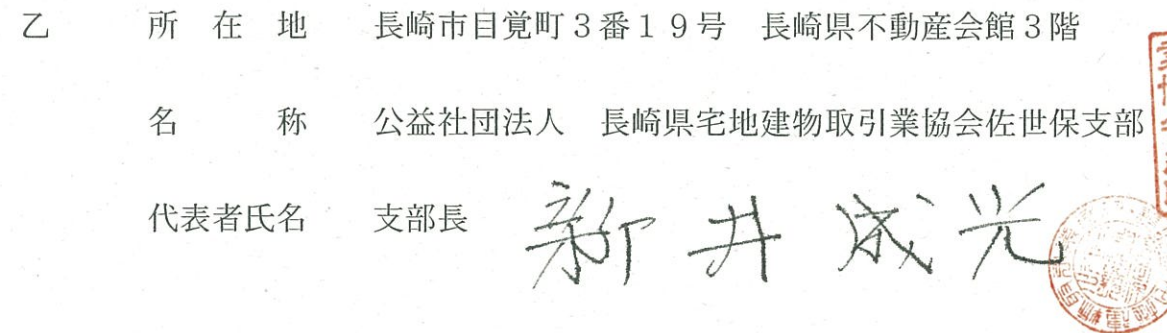 乙 所在地 長崎市目覚町3番19号 長崎県不動産会館3階
名称 公益社団法人 長崎県宅地建物取引業協会佐世保支部
代表者氏名 支部長 新井成光